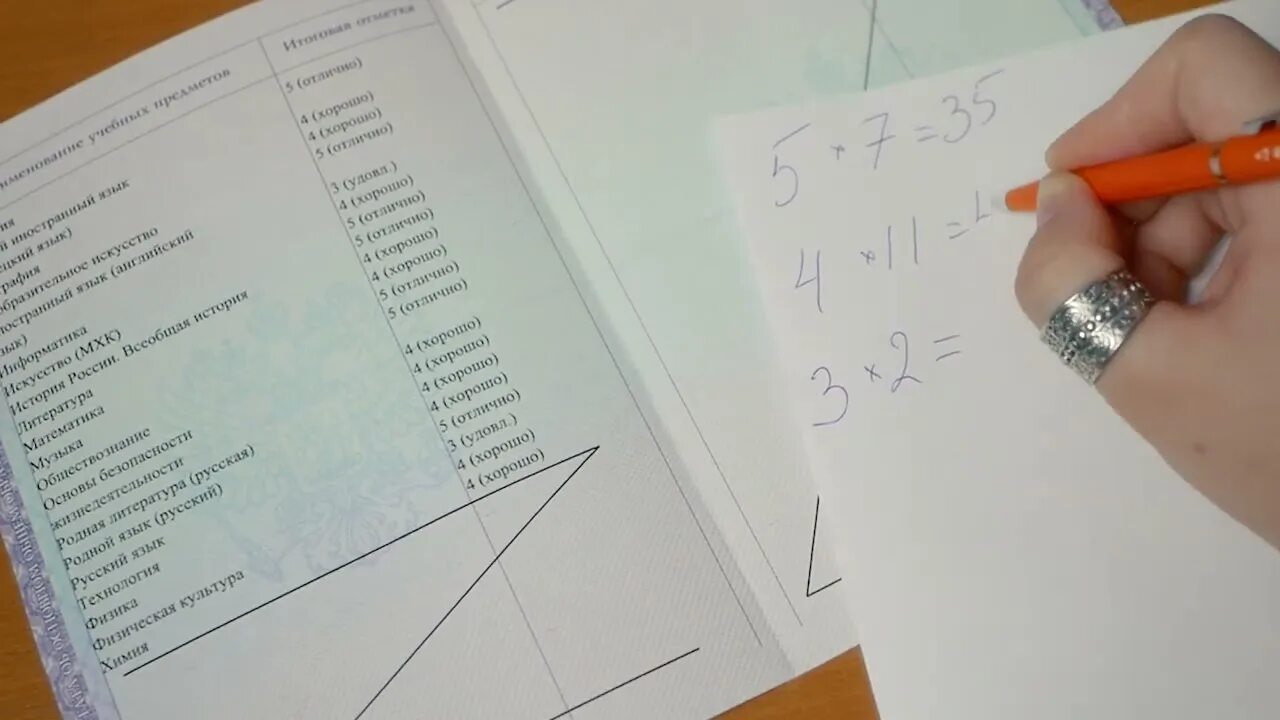 учебных предметов
Итоговая отметка
иностранный язык
язык)
искусство
язык (английский
Информатика
Искусство (МХК)
История России. Всеобщая история
Литература
Математика
Музыка
Обществознание
Основы безопасности
жизнедеятельности
Родная литература (русская)
Родной язык (русский)
Русский язык
Технология
Физика
Физическая культура
Химия
5 (отлично)
4 (хорошо)
4 (хорошо)
5 (отлично)
3 (удовл.)
4 (хорошо)
5 (отлично)
5 (отлично)
4 (хорошо)
4 (хорошо)
5 (отлично)
5 (отлично)
4 (хорошо)
4 (хорошо)
4 (хорошо)
4 (хорошо)
5 (отлично)
3 (удовл.)
4 (хорошо)
4 (хорошо)
5 × 7 = 35
4 × 11 =
3 × 2 =